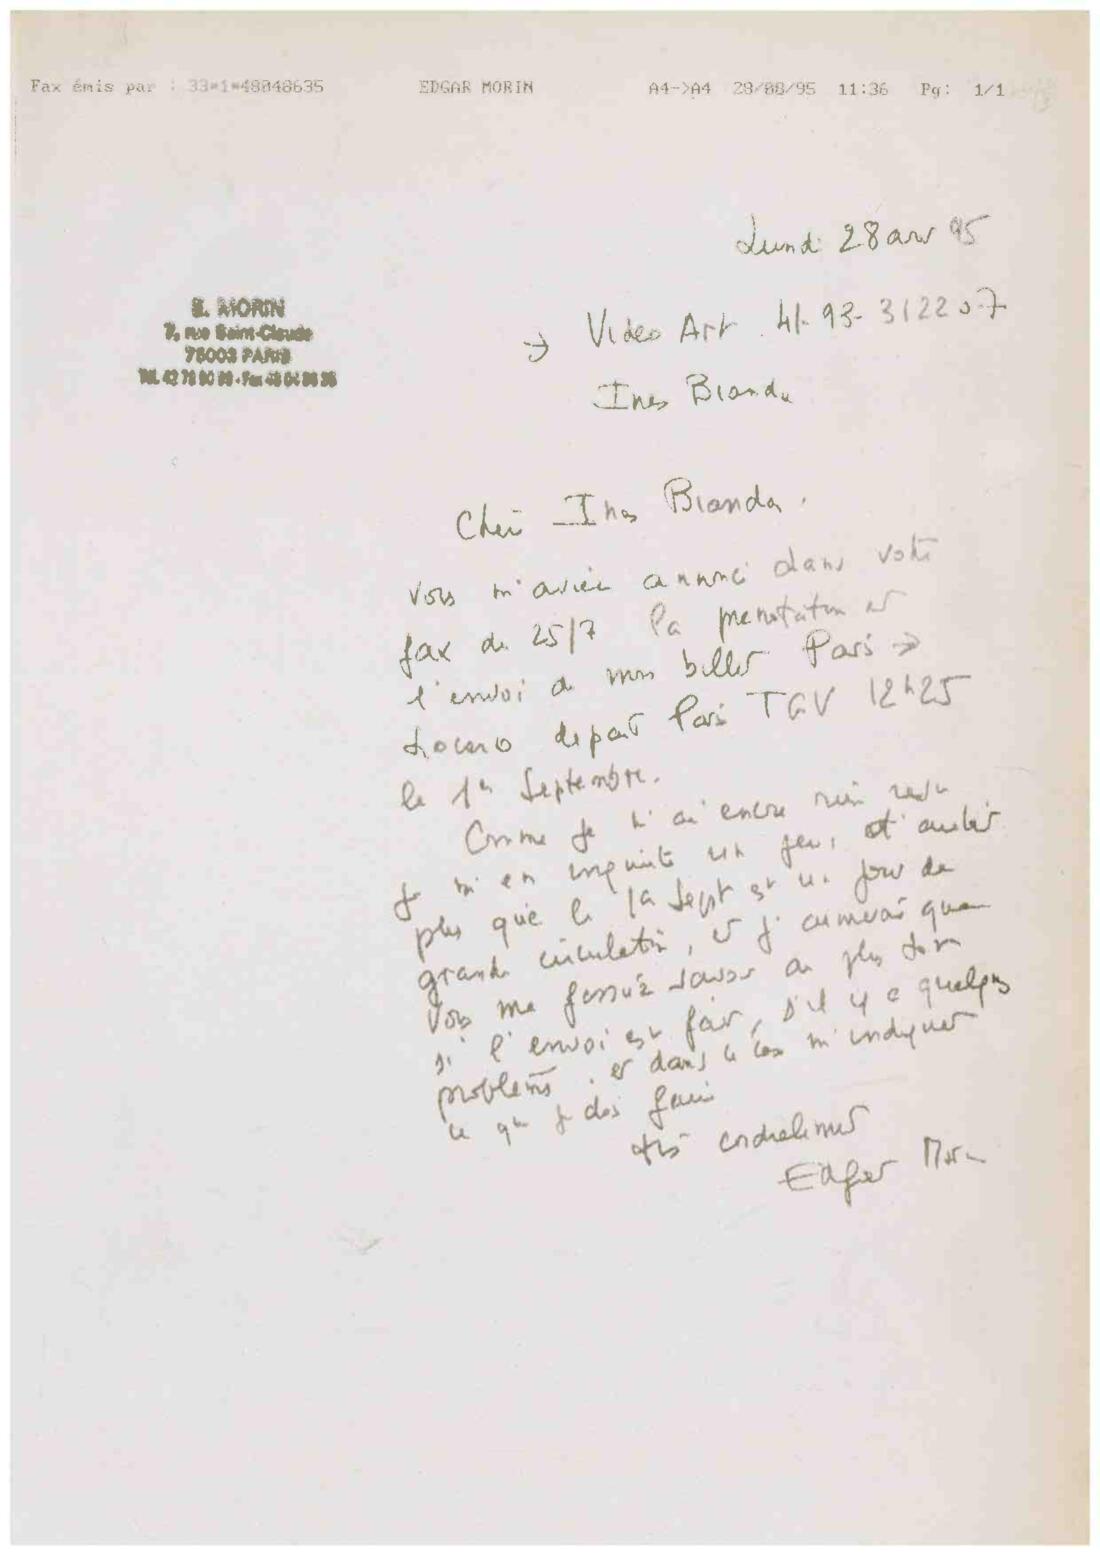 Fax émis par : 33=1=48048635 EDGAR MORIN A4->A4 28/08/95 11:36 Pg: 1/1
Lundi 28 95
E. MORIN
7, rue Saint-Claude
75003 PARIS
→ Video Art 41-93-312207
Ines Bianda
Chère Ines Bianda.
Vous m'aviez annoncé dans votre
fax du 25/7 la et
l'envoi de mon billet Paris →
Locarno départ Paris TGV 12h25
le 1er Septembre.
Comme je n'ai encore rien reçu
je m'en inquiète un peu, d'autant
plus que le 1er Sept est un jour de
grande circulation, et j'aimerais que
vous me fassiez savoir au plus
si l'envoi est fait, s'il y a quelques
problèmes et dans ce cas m'indiquer
ce que je dois faire
très cordialement
Edgar Morin